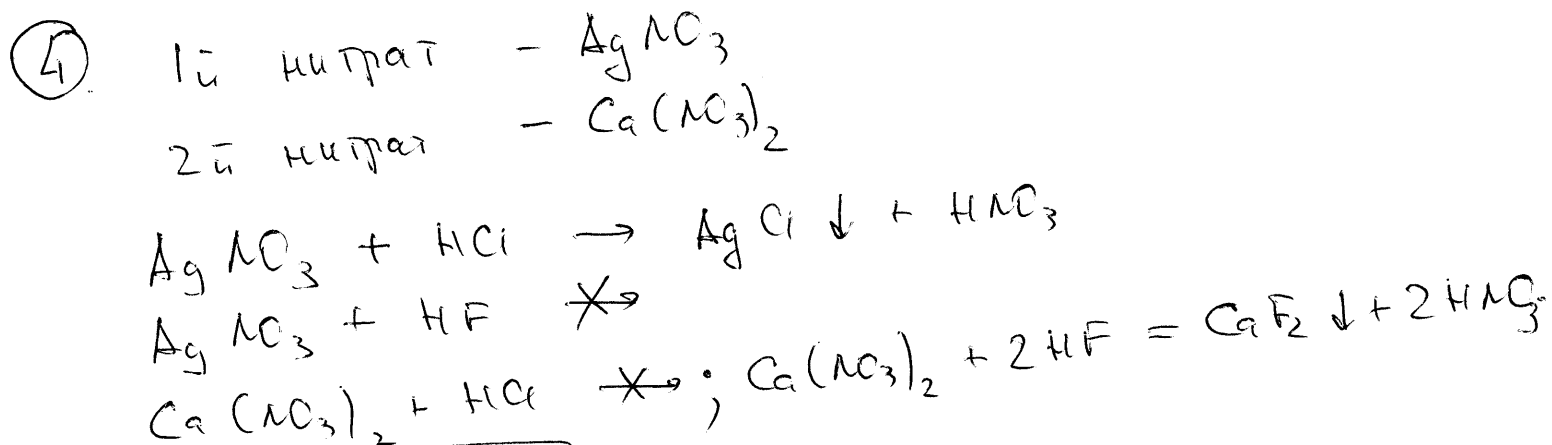 4 1й нитрат – AgNO3
2й нитрат – Ca(NO3)2
AgNO3 + HCl → AgCl ↓ + HNO3
AgNO3 + HF ↛
Ca(NO3)2 + HCl ↛ ; Ca(NO3)2 + 2HF = CaF2 ↓ + 2HNO3